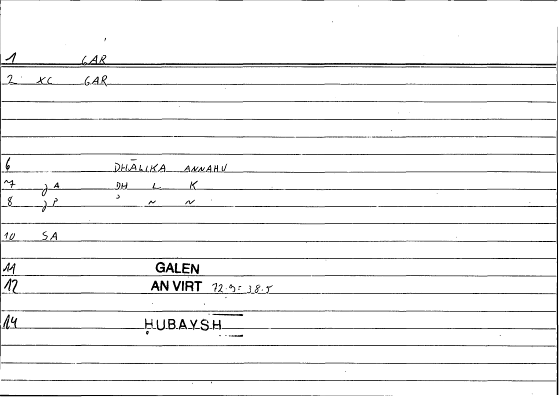 1 GAR
2 XC GAR
6 DHĀLIKA ANNAHU
7 jA DH L K
8 jP ' ~ ~
10 SA
11 GALEN
12 AN VIRT 72.9 = 38.5
14 ḤUBAYSH